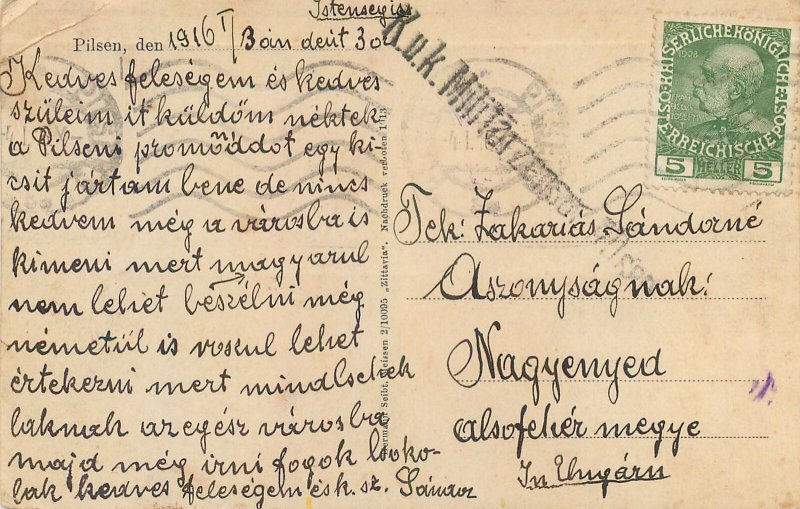 Istensegiss
Pilsen, den 1916 I/3án deut 30
Kedves feleségem és kedves
szüleim it küldöm néktek
a Pilseni promöddot egy ki-
csit jártam bene de nincs
kedvem még a városba is
kimeni mert magyarul
nem lehet beszélni még
németül is roskul lehet
értekezni mert mind csehek
laknak az egész városba
majd még irni fogok csoko-
lak kedves feleségem és k. sz. Sándor
Hermann Seibt, Meissen 2/10095 „Zittavia“, Nachdruck verboten 1913
K.u.k. Militärzensur Pilsen
PILSEN
KAISERLICHE KÖNIGLICHE
ÖSTERREICHISCHE POST
1908
FRANZ JOSEPH I
5 HELLER 5
Tek: Zakariás Sándorné
Aszonyságnak:
Nagyenyed
alsofehér megye
In Ungárn